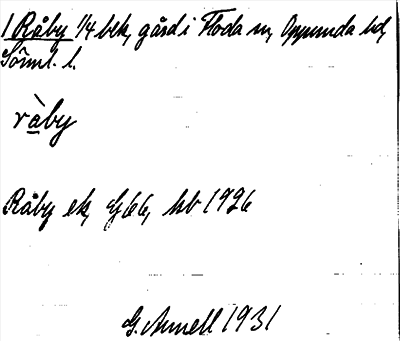 1 Råby 1/4 bek, gård i Floda sn, Oppunda hd,
Södml. l.
ràby
Råby ek, G66, hb 1926
G. Annell 1931